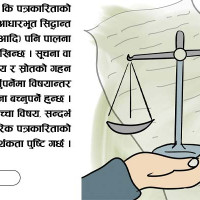 कि पत्रकारिताको
आधारभूत सिद्धान्त
आदि) पनि पालना
खिन्छ । सूचना वा
य र स्रोतको गहन
पर्नेमा विषयान्तर
ना बच्नुपर्ने हुन्छ ।
च्चा विषय, सन्दर्भ
रिक पत्रकारिताको
र्थकता पुष्टि गर्छ ।